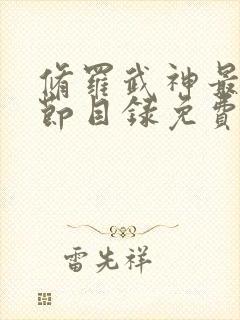 脩羅武神最
節目錄免費
雷先祥